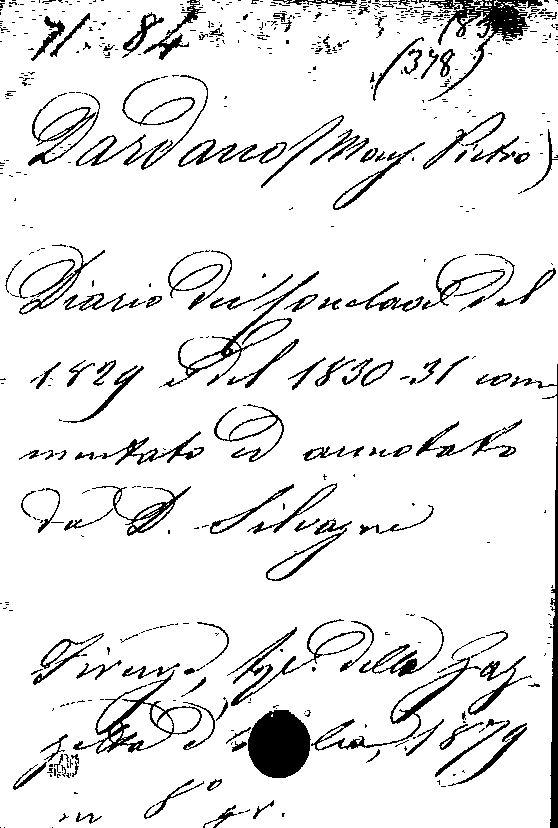 71. 84
(378)
Dardano (Mons. Pietro)
Diario dei Conclavi del
1829 e del 1830-31 com-
mentato ed annotato
da D. Silvagni
Firenze, tip. della Gaz-
zetta d'Italia, 1879
in 8° gr.